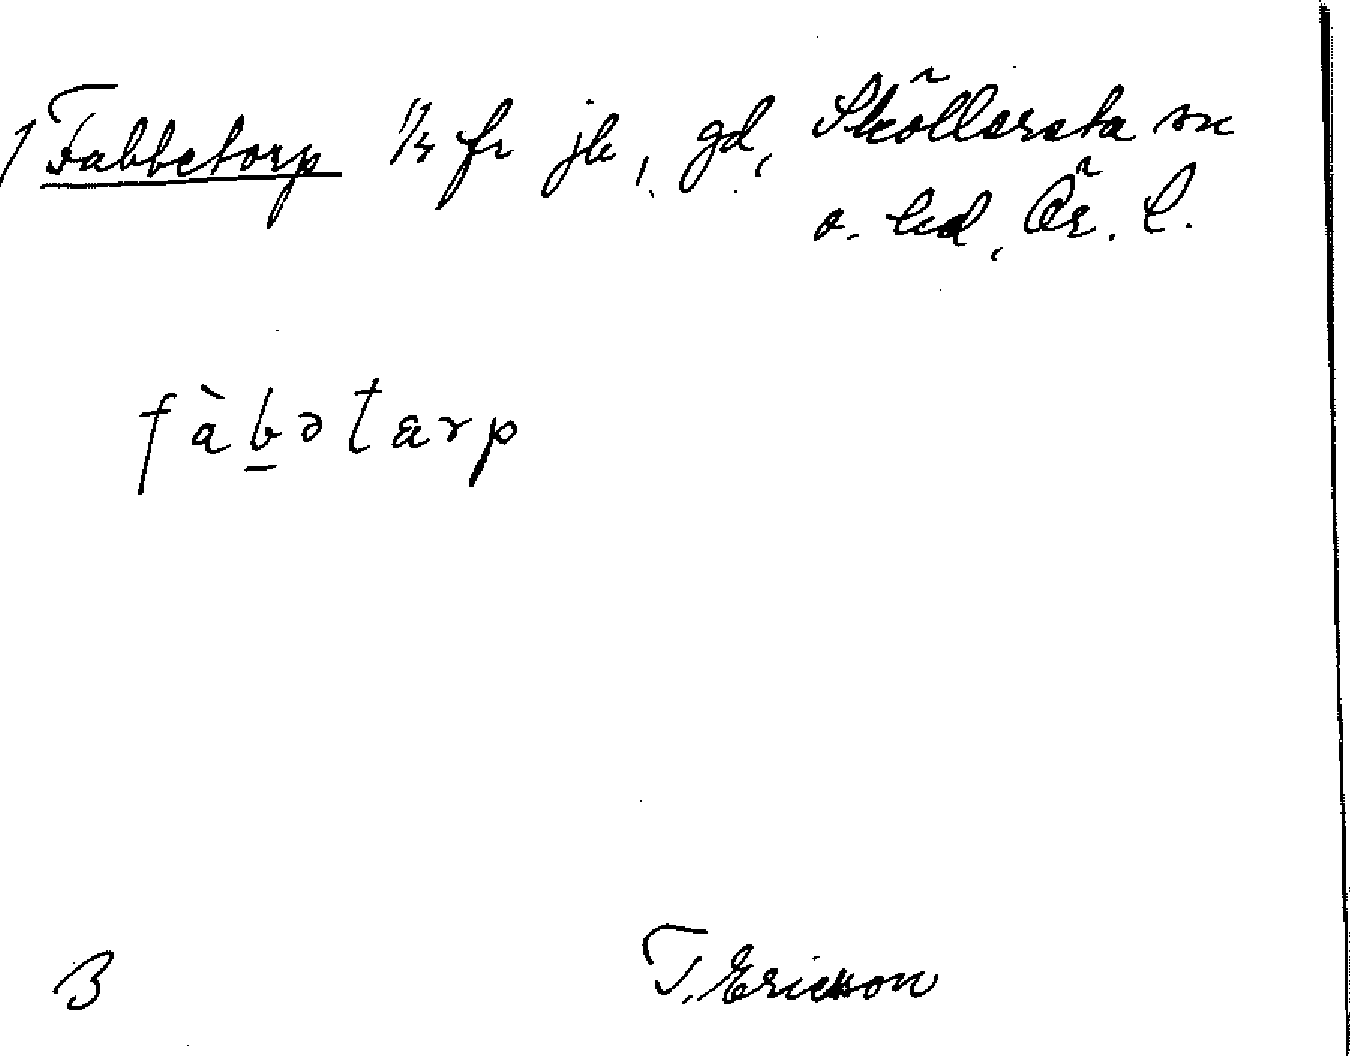 1 Fabbetorp 1/3 fr jk, gd, Sköllersta sn
o. hd, Ör. l.
fàb̲ətarp
B T. Ericson